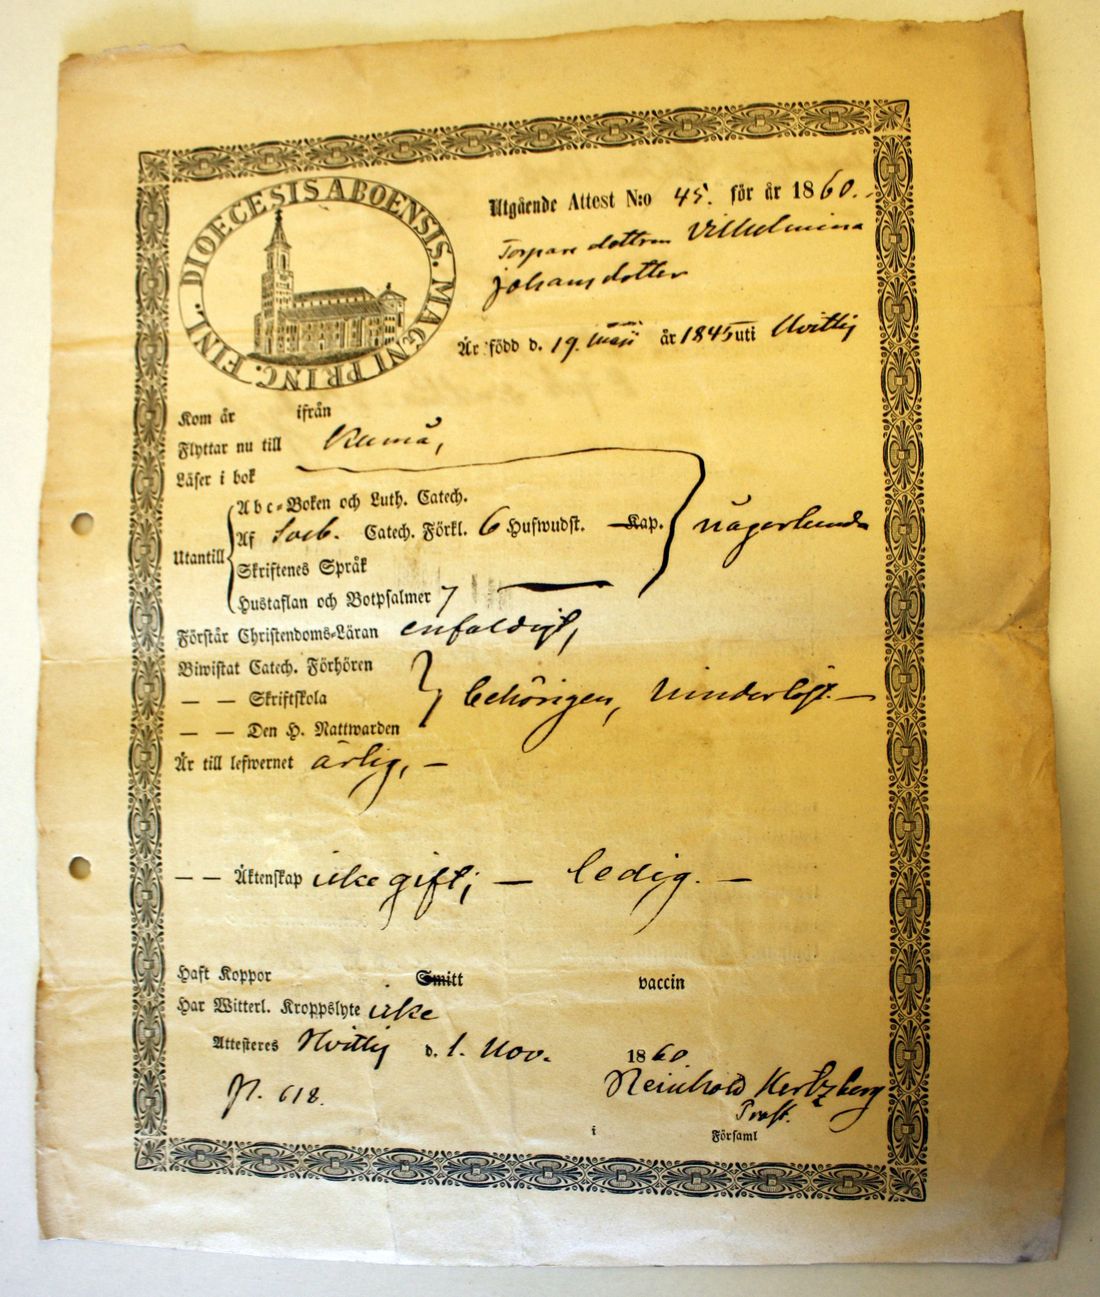 DIOECESIS ABOENSIS. MAGNI PRINC. FINL.
Utgående Attest N:o 45. för år 1860.
Torpare dottren Vilhelmina
Johansdotter
Är född d. 19. Maji år 1845 uti Hvittis
Kom år ifrån
Flyttar nu till Kumå,
Läser i bok
Abc-Boken och Luth. Catech.
Utantill Af Sveb. Catech. Förkl. 6 Hufwudst. Kap. någorlunda
Skriftenes Språk
Hustaflan och Botpsalmer 7
Förstår Christendoms-Läran enfaldigt,
Biwistat Catech. Förhören
— — Skriftskola behörigen, hinderlöst. —
— — Den H. Nattwarden
Är till lefwernet ärlig, —
— — Äktenskap icke gift; — ledig. —
Haft Koppor Smitt vaccin
Har Witterl. Kroppslyte icke
Attesteres Hvittis d. 1. Nov. 1860
P. 618. Reinhold Hertzberg
Prost.
i Församl